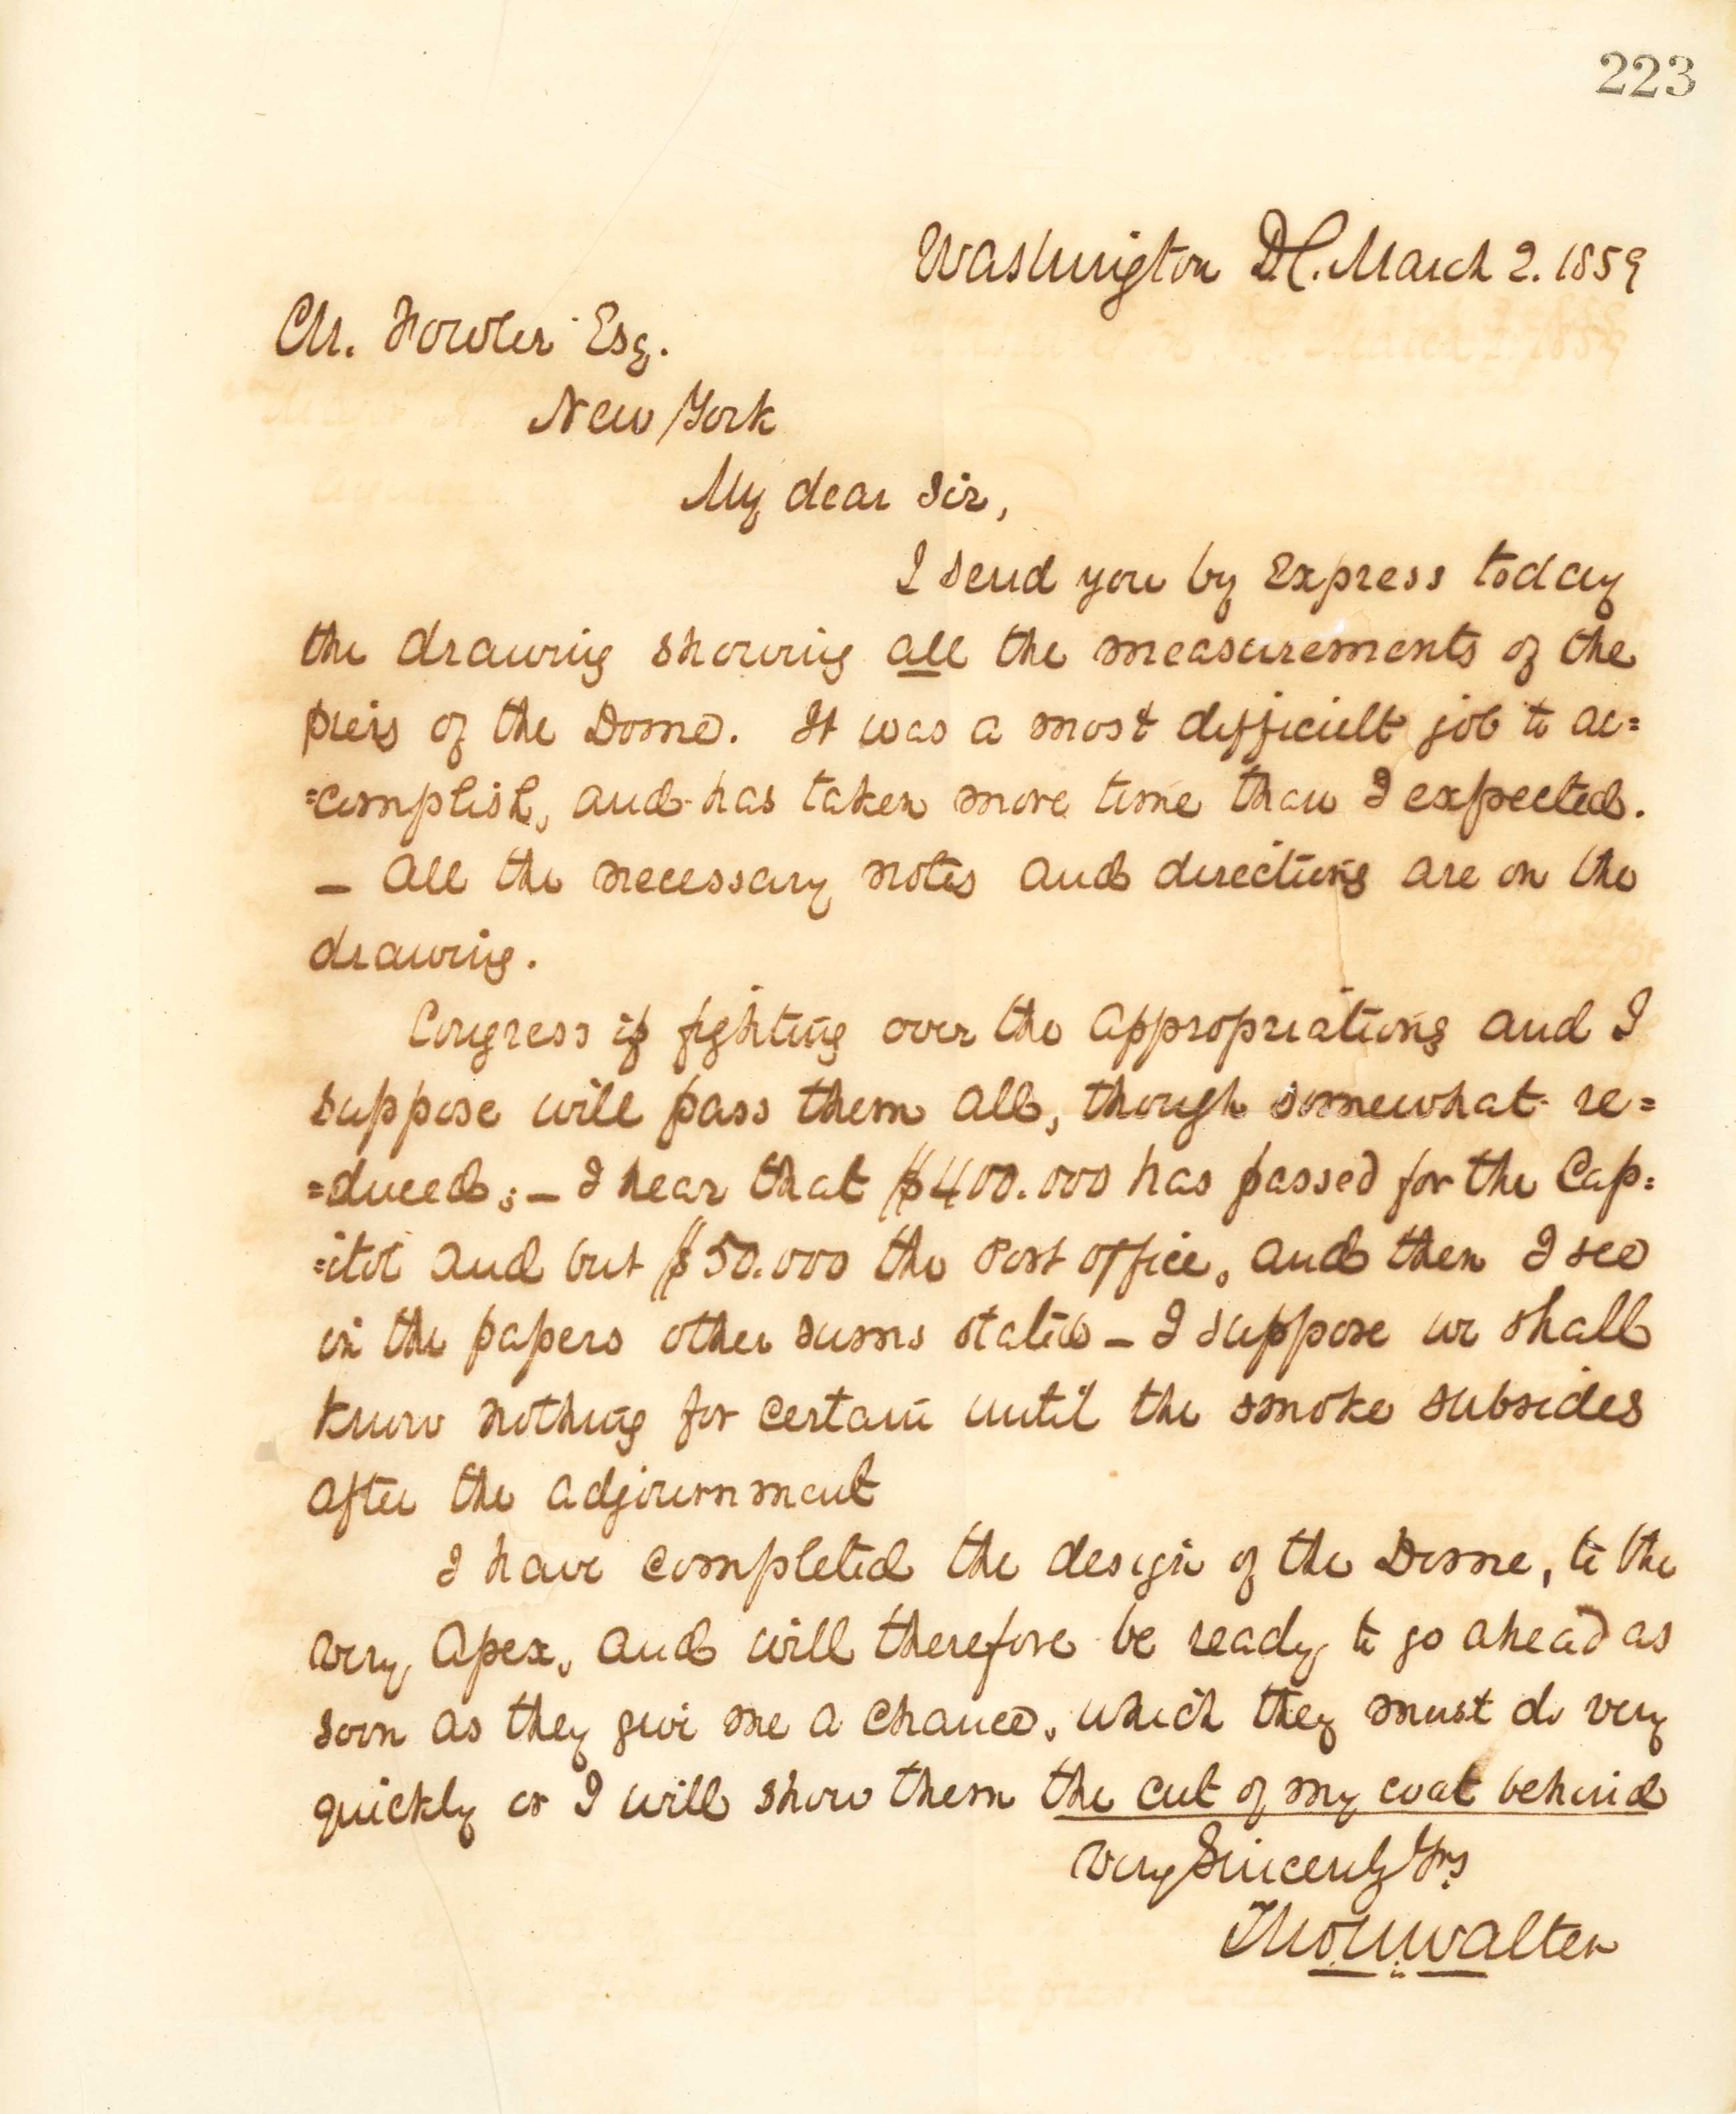 223
Washington DC. March 2. 1859
Ch. Fowler Esq.
New York
My dear Sir,
I send you by Express today
the drawing showing all the measurements of the
piers of the Dome. It was a most difficult job to ac=
=complish, and has taken more time than I expected.
— All the necessary notes and directions are on the
drawing.
Congress is fighting over the appropriations and I
suppose will pass them all, though somewhat re=
=duced; — I hear that $400.000 has passed for the Cap=
=itol and but $50.000 the Post office, and then I see
in the papers other sums stated — I suppose we shall
know nothing for certain until the smoke subsides
after the adjournment
I have completed the design of the Dome, to the
very Apex, and will therefore be ready to go ahead as
soon as they give me a chance, which they must do very
quickly or I will show them the cut of my coat behind
Very Sincerely Yrs
Tho. U. Walter